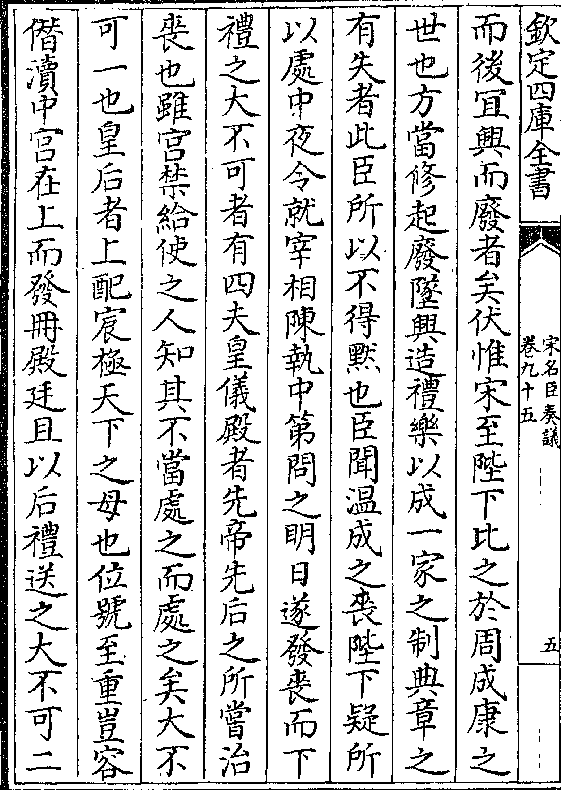 欽定四庫全書
宋名臣奏議
卷九十五
五
而後冝興而廢者矣伏惟宋至陛下比之於周成康之
世也方當修起廢墜興造禮樂以成一家之制典章之
有失者此臣所以不得黙也臣聞温成之喪陛下疑所
以處中夜令就宰相陳執中第問之明日遂發喪而下
禮之大不可者有四夫皇儀殿者先帝先后之所嘗治
喪也雖宫禁給使之人知其不當處之而處之矣大不
可一也皇后者上配宸極天下之母也位號至重豈容
僭瀆中宫在上而發冊殿廷且以后禮送之大不可二